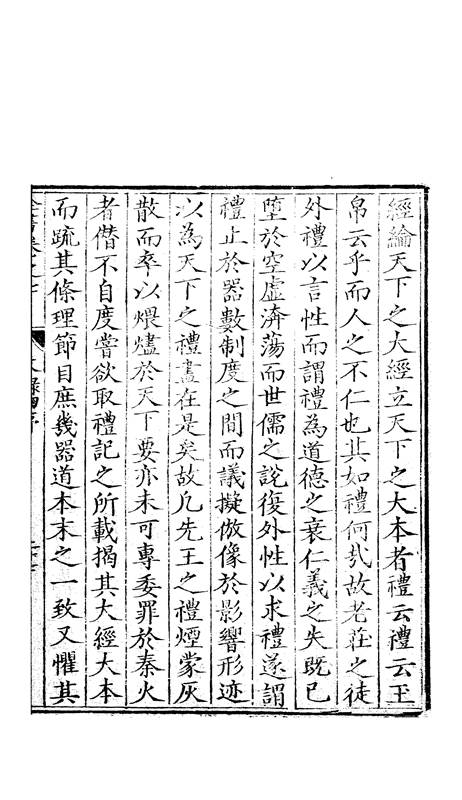 經綸天下之大經立天下之大本者禮云禮云玉
帛云乎而人之不仁也其如禮何㢤故老莊之徒
外禮以言性而謂禮為道德之衰仁義之失既已
墮於空虛漭蕩而世儒之說復外性以求禮遂謂
禮止於器數制度之間而議擬倣像於影響形迹
以為天下之禮盡在是矣故凡先王之禮煙蒙灰
散而卒以煨燼於天下要亦未可專委罪於秦火
者僭不自度嘗欲取禮記之所載揭其大經大本
而䟽其條理節目庶幾器道本末之一致又懼其